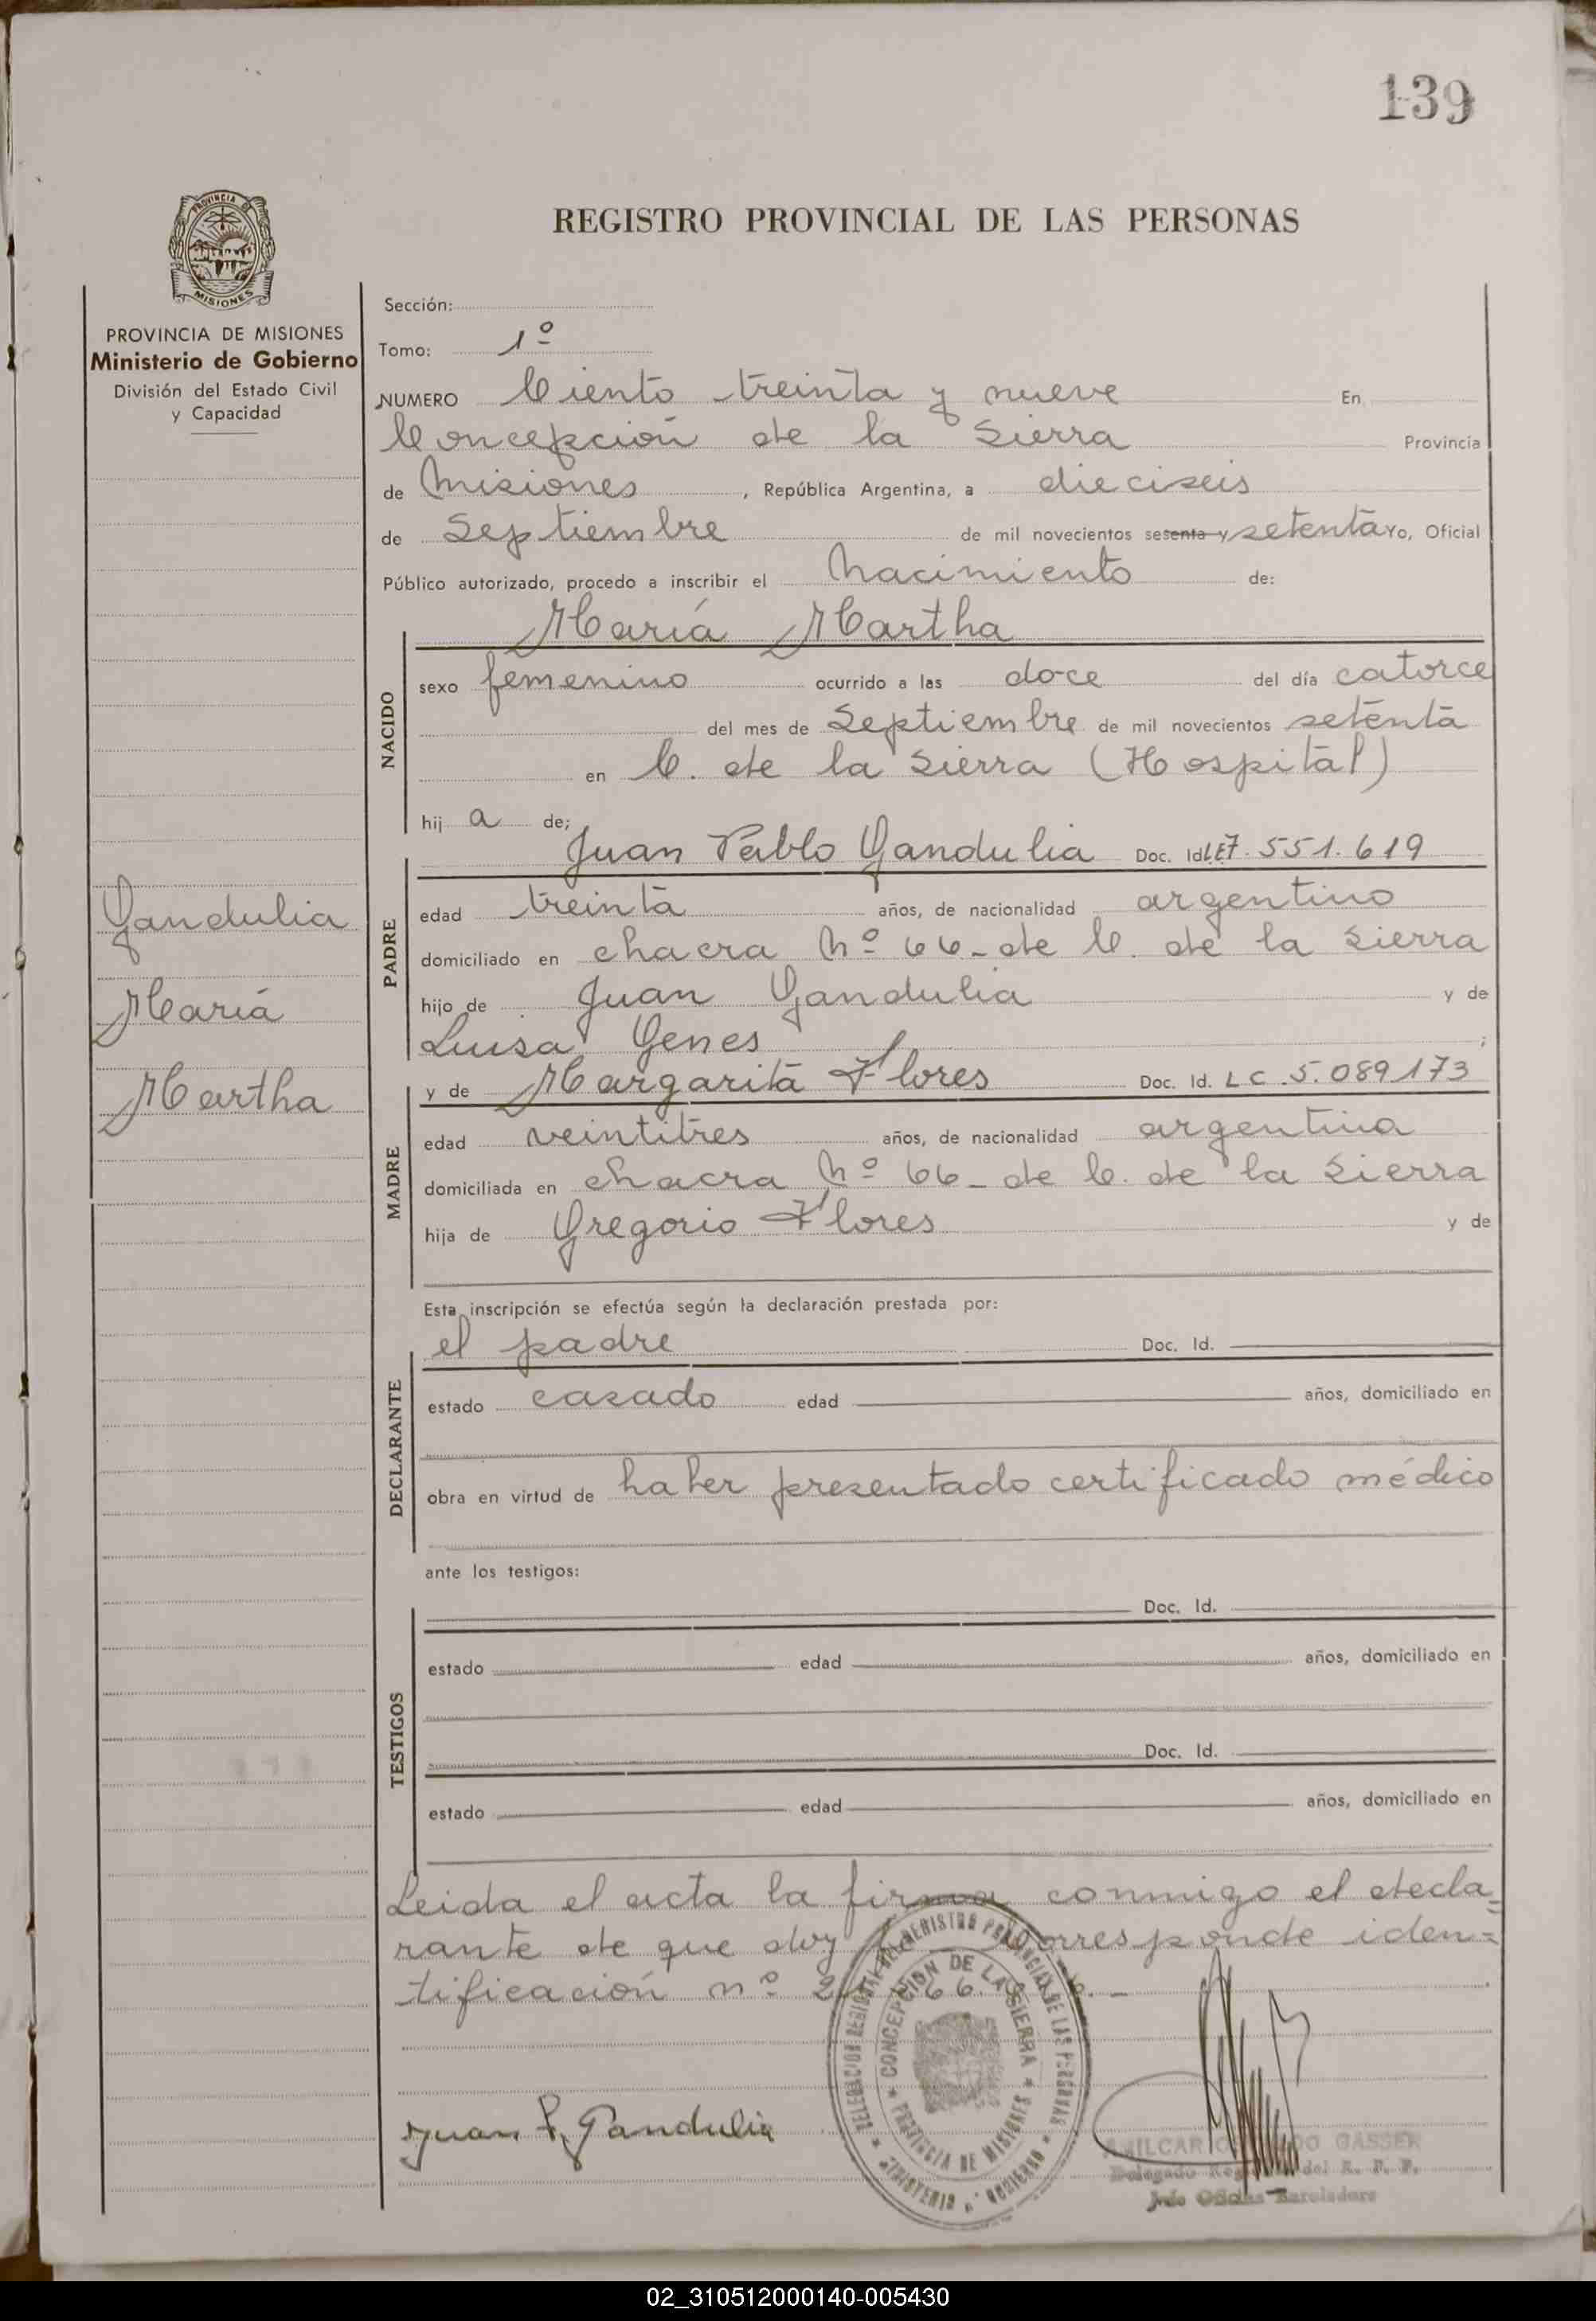 139
PROVINCIA DE
MISIONES
REGISTRO PROVINCIAL DE LAS PERSONAS
PROVINCIA DE MISIONES
Ministerio de Gobierno
División del Estado Civil
y Capacidad
Gandulia
María
Martha
Sección:
Tomo: 1º
NUMERO Ciento treinta y nueve En
Concepción de la Sierra Provincia
de Misiones, República Argentina, a dieciseis
de Septiembre de mil novecientos sesenta y setenta yo, Oficial
Público autorizado, procedo a inscribir el Nacimiento de:
María Martha
NACIDO
sexo femenino ocurrido a las doce del día catorce
del mes de Septiembre de mil novecientos setenta
en C. de la Sierra (Hospital)
hij a de;
Juan Pablo Gandulia Doc. Id LE 7.551.619
PADRE
edad treinta años, de nacionalidad argentino
domiciliado en chacra Nº 66 - de C. de la Sierra
hijo de Juan Gandulia y de
Luisa Genes ;
y de Margarita Flores Doc. Id. L C . 5.089173
MADRE
edad veintitres años, de nacionalidad argentina
domiciliada en chacra Nº 66 - de C. de la Sierra
hija de Gregorio Flores y de
Esta inscripción se efectúa según la declaración prestada por:
el padre Doc. Id.
DECLARANTE
estado casado edad años, domiciliado en
obra en virtud de haber presentado certificado médico
ante los testigos:
Doc. Id.
TESTIGOS
estado edad años, domiciliado en
Doc. Id.
estado edad años, domiciliado en
Leida el acta la firma conmigo el decla-
rante de que doy fe. Corresponde iden=
tificación nº
DELEGACION REGIONAL DEL REGISTRO PROVINCIAL DE LAS PERSONAS
CONCEPCION DE LA SIERRA
PROVINCIA DE MISIONES
MINISTERIO DE GOBIERNO
Juan P. Gandulia
GASSER
Delegado del R. P. P.
Jefe Oficina Enroladora
02_310512000140-005430